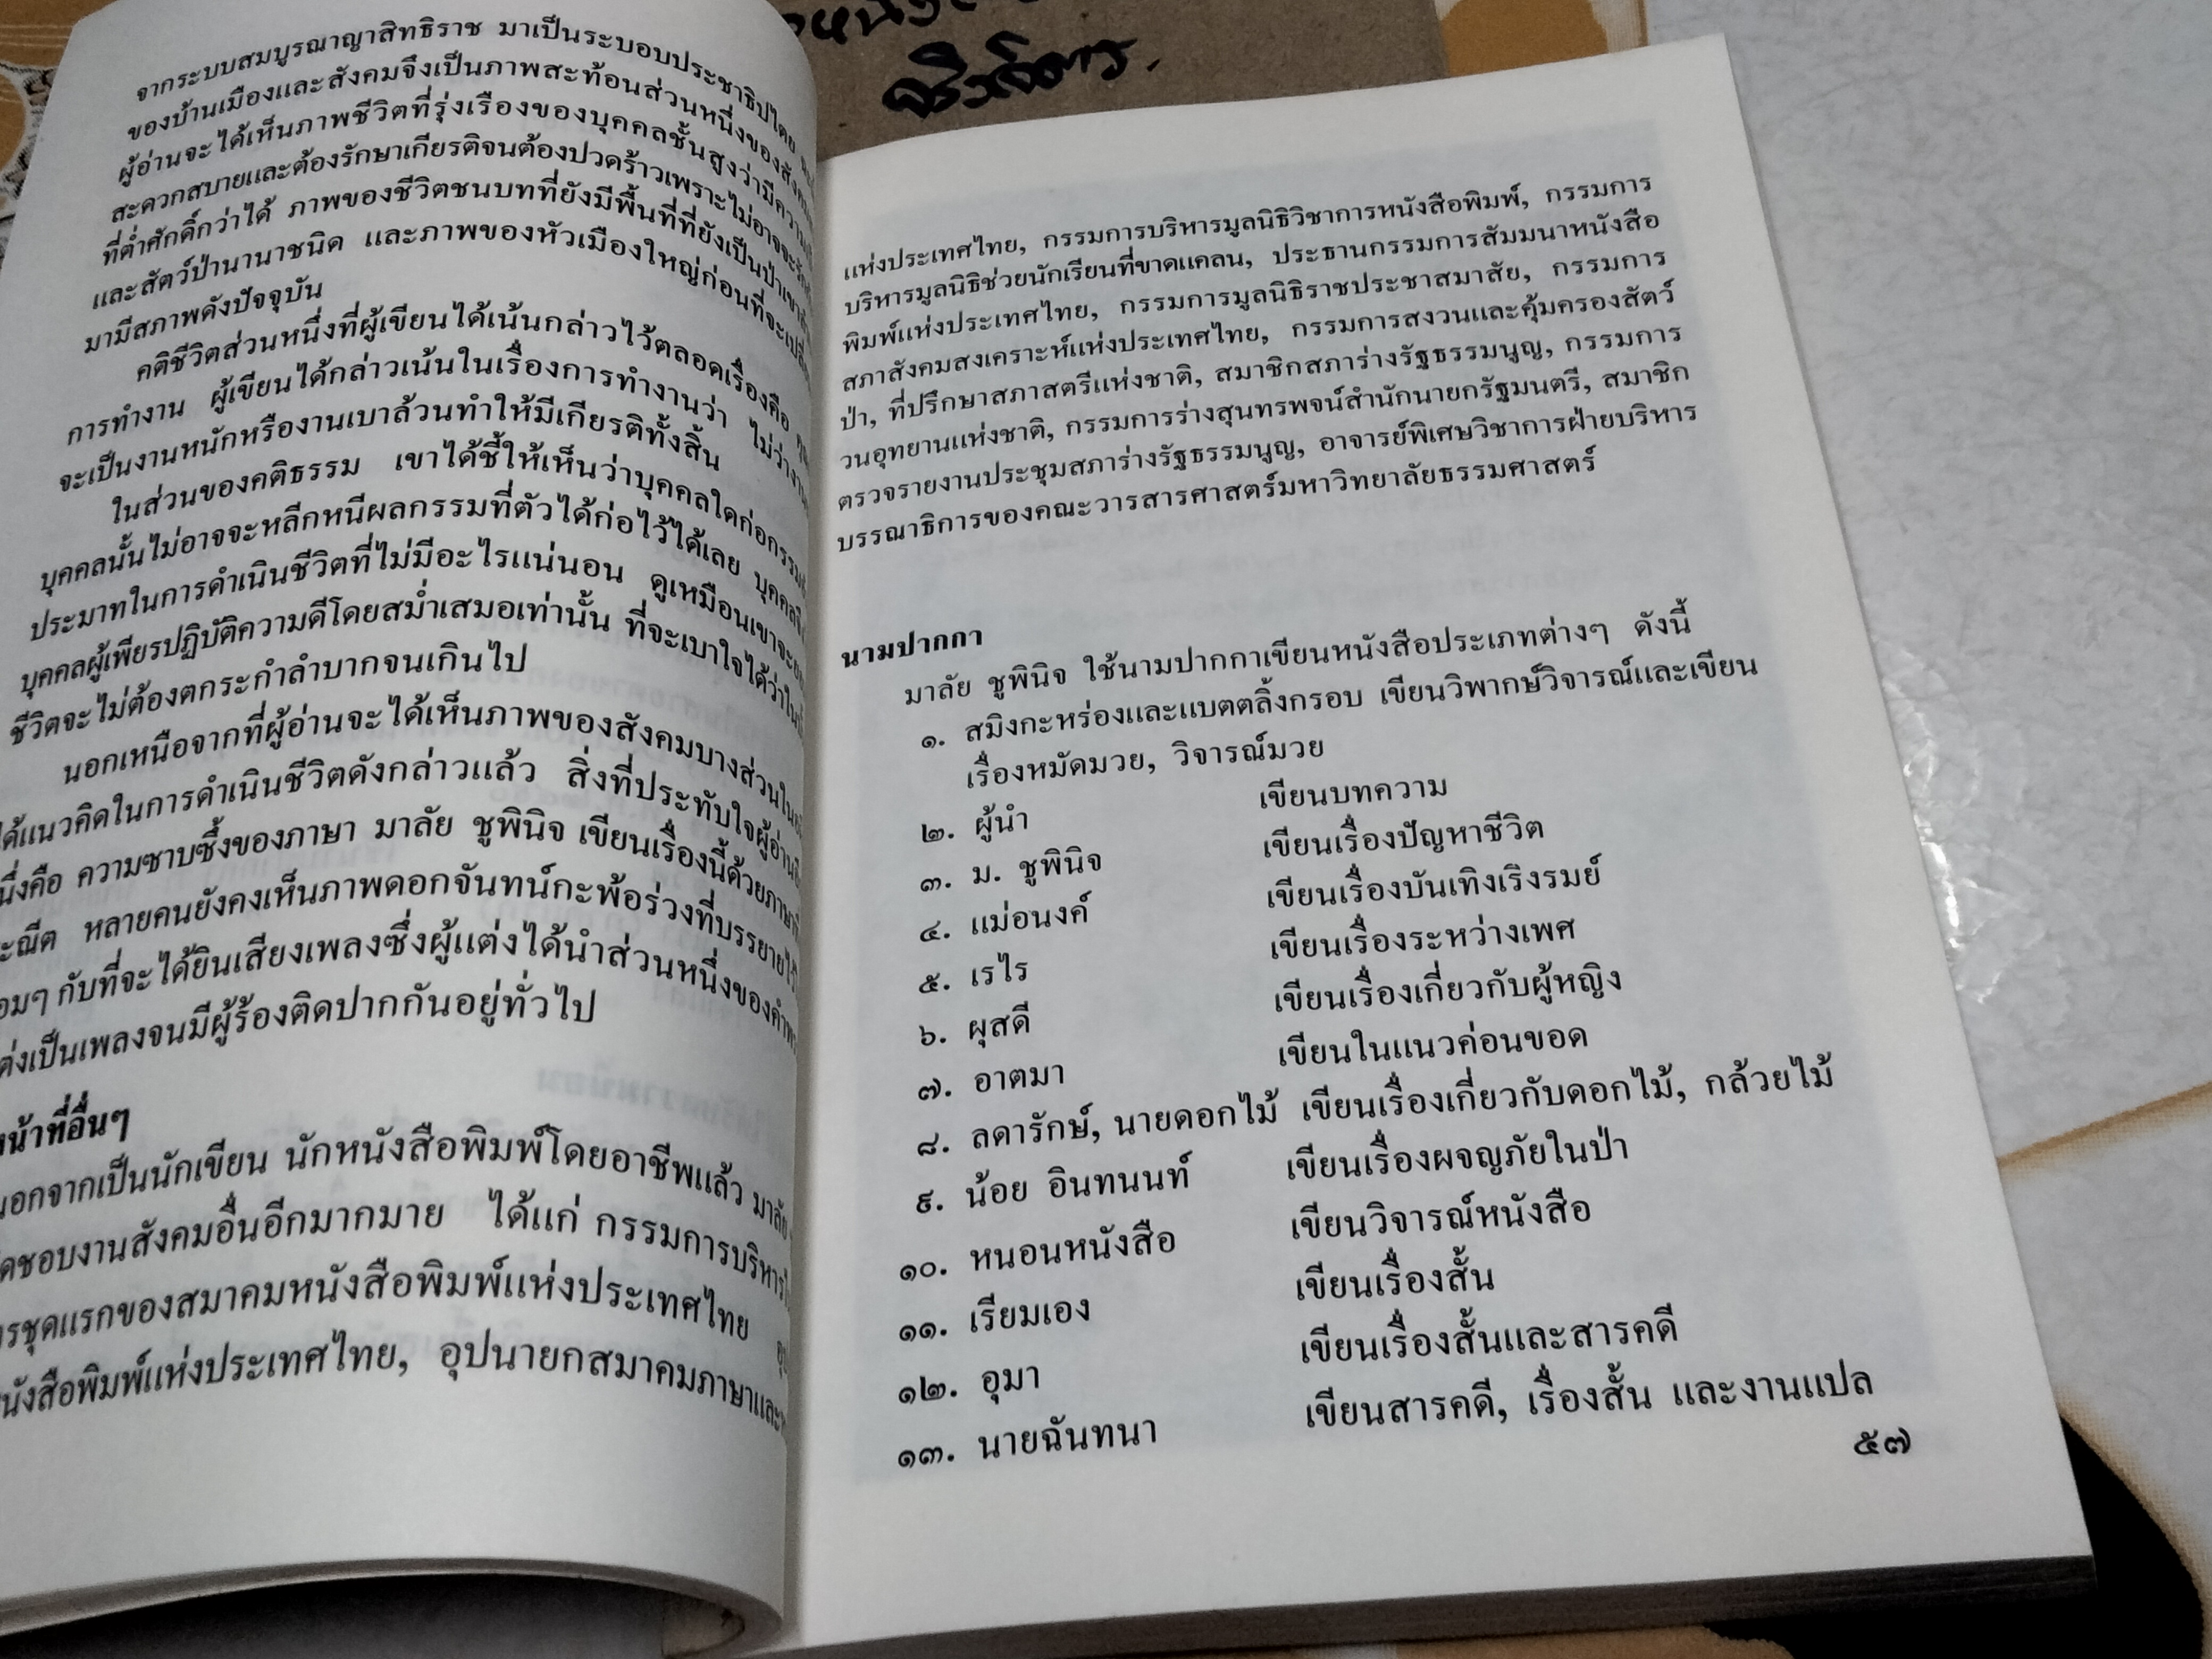 จากระบบสมบูรณาญาสิทธิราช มาเป็นระบอบประชาธิปไตย
ของบ้านเมืองและสังคมจึงเป็นภาพสะท้อนส่วนหนึ่งของสังคม
ผู้อ่านจะได้เห็นภาพชีวิตที่รุ่งเรืองของบุคคลชั้นสูงว่ามีความ
สะดวกสบายและต้องรักษาเกียรติจนต้องปวดร้าวเพราะไม่อาจจะรัก
ที่ต่ำศักดิ์กว่าได้ ภาพของชีวิตชนบทที่ยังมีพื้นที่ที่ยังเป็นป่าเขา
และสัตว์ป่านานาชนิด และภาพของหัวเมืองใหญ่ก่อนที่จะ
มามีสภาพดังปัจจุบัน
คติชีวิตส่วนหนึ่งที่ผู้เขียนได้เน้นกล่าวไว้ตลอดเรื่องคือ
การทำงาน ผู้เขียนได้กล่าวเน้นในเรื่องการทำงานว่า ไม่ว่างาน
จะเป็นงานหนักหรืองานเบาล้วนทำให้มีเกียรติทั้งสิ้น
ในส่วนของคติธรรม เขาได้ชี้ให้เห็นว่าบุคคลใดก่อกรรม
บุคคลนั้นไม่อาจจะหลีกหนีผลกรรมที่ตัวได้ก่อไว้ได้เลย
ประมาทในการดำเนินชีวิตที่ไม่มีอะไรแน่นอน ดูเหมือนเขาจะ
บุคคลผู้เพียรปฏิบัติความดีโดยสม่ำเสมอเท่านั้น ที่จะเบาใจได้ว่า
ชีวิตจะไม่ต้องตกระกำลำบากจนเกินไป
นอกเหนือจากที่ผู้อ่านจะได้เห็นภาพของสังคมบางส่วน
ได้แนวคิดในการดำเนินชีวิตดังกล่าวแล้ว สิ่งที่ประทับใจผู้อ่าน
นึ่งคือ ความซาบซึ้งของภาษา มาลัย ชูพินิจ เขียนเรื่องนี้ด้วยภาษา
ะณีต หลายคนยังคงเห็นภาพดอกจันทน์กะพ้อร่วงที่บรรยายไว้
อมๆ กับที่จะได้ยินเสียงเพลงซึ่งผู้แต่งได้นำส่วนหนึ่งของคำ
ต่งเป็นเพลงจนมีผู้ร้องติดปากกันอยู่ทั่วไป
หน้าที่อื่นๆ
นอกจากเป็นนักเขียน นักหนังสือพิมพ์โดยอาชีพแล้ว มาลัย
ดชอบงานสังคมอื่นอีกมากมาย ได้แก่ กรรมการบริหาร
รชุดแรกของสมาคมหนังสือพิมพ์แห่งประเทศไทย
นังสือพิมพ์แห่งประเทศไทย, อุปนายกสมาคมภาษาและ
แห่งประเทศไทย, กรรมการบริหารมูลนิธิวิชาการหนังสือพิมพ์, กรรมการ
บริหารมูลนิธิช่วยนักเรียนที่ขาดแคลน, ประธานกรรมการสัมมนาหนังสือ
พิมพ์แห่งประเทศไทย, กรรมการมูลนิธิราชประชาสมาสัย, กรรมการ
สภาสังคมสงเคราะห์แห่งประเทศไทย, กรรมการสงวนและคุ้มครองสัตว์
ป่า, ที่ปรึกษาสภาสตรีแห่งชาติ, สมาชิกสภาร่างรัฐธรรมนูญ, กรรมการ
วนอุทยานแห่งชาติ, กรรมการร่างสุนทรพจน์สำนักนายกรัฐมนตรี, สมาชิก
ตรวจรายงานประชุมสภาร่างรัฐธรรมนูญ, อาจารย์พิเศษวิชาการฝ่ายบริหาร
บรรณาธิการของคณะวารสารศาสตร์มหาวิทยาลัยธรรมศาสตร์
นามปากกา
มาลัย ชูพินิจ ใช้นามปากกาเขียนหนังสือประเภทต่างๆ ดังนี้
๑. สมิงกะหร่องและแบตตลิ้งกรอบ เขียนวิพากษ์วิจารณ์และเขียน
เรื่องหมัดมวย, วิจารณ์มวย
๒. ผู้นำ เขียนบทความ
๓. ม. ชูพินิจ เขียนเรื่องปัญหาชีวิต
๔. แม่อนงค์ เขียนเรื่องบันเทิงเริงรมย์
๕. เรไร เขียนเรื่องระหว่างเพศ
๖. ผุสดี เขียนเรื่องเกี่ยวกับผู้หญิง
๗. อาตมา เขียนในแนวค่อนขอด
๘. ลดารักษ์, นายดอกไม้ เขียนเรื่องเกี่ยวกับดอกไม้, กล้วยไม้
๙. น้อย อินทนนท์ เขียนเรื่องผจญภัยในป่า
๑๐. หนอนหนังสือ เขียนวิจารณ์หนังสือ
๑๑. เรียมเอง เขียนเรื่องสั้น
๑๒. อุมา เขียนเรื่องสั้นและสารคดี
๑๓. นายฉันทนา เขียนสารคดี, เรื่องสั้น และงานแปล
๕๗